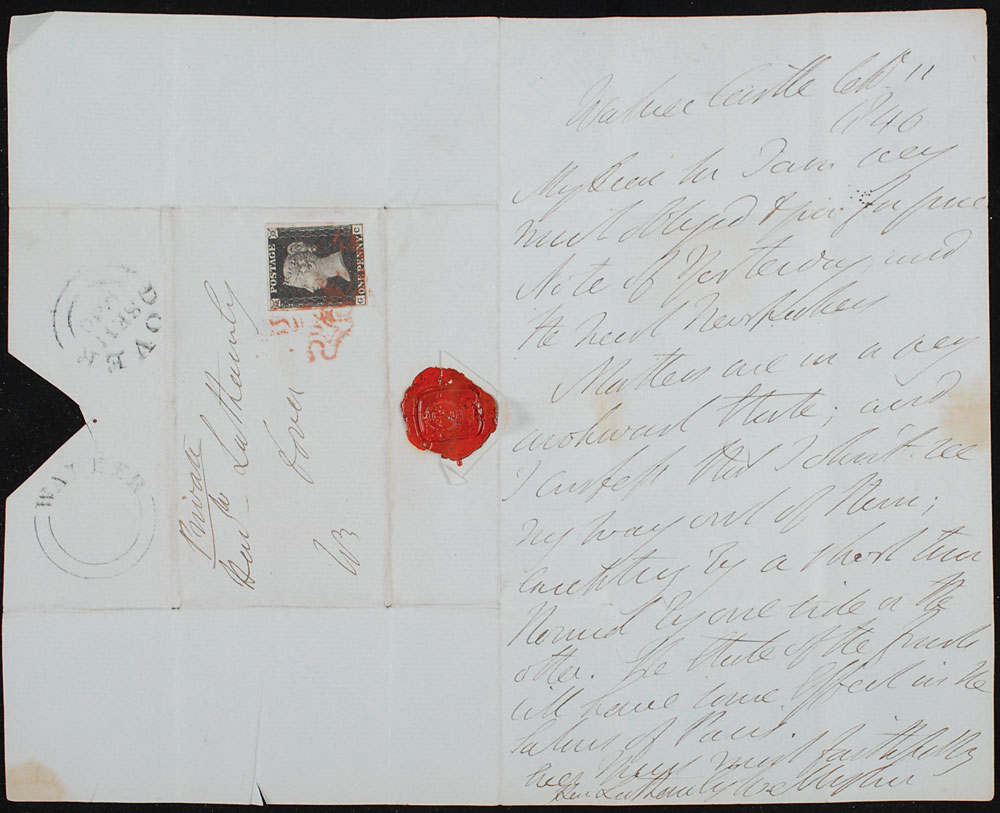 Walmer Castle Sept 11
1840
My Dear Sir I am very
much obliged to you for your
Note of Yesterday, and
the next Newspapers
Matters are in a very
awkward State; and
I confess that I don't see
my way out of them;
by a short turn
by one side or the
other. The State of the Funds
will have some Effect in the
of Paris.
Ever Yours most faithfully
Wellington
Private
Latham Esq
Dover
W
POSTAGE
ONE PENNY
G C
DOVER
SP 11
1840
WALMER